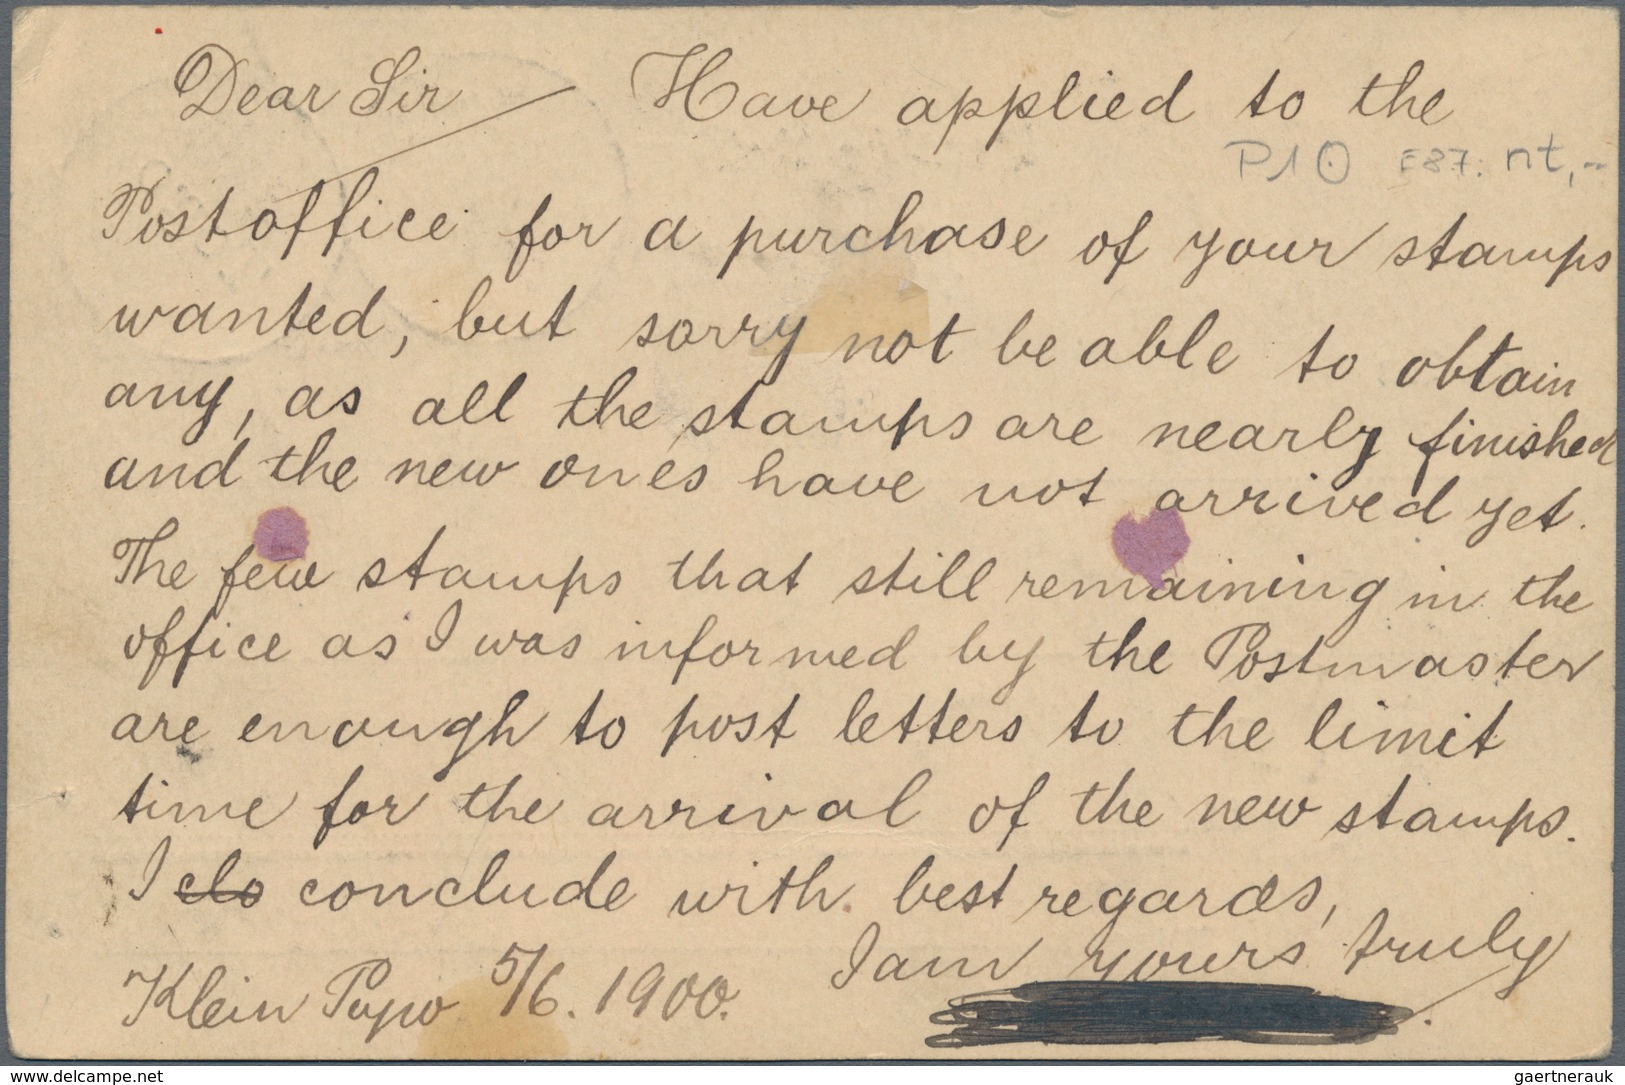 Dear Sir Have applied to the
P10 F87. nt,--
Postoffice for a purchase of your stamps
wanted, but sorry not be able to obtain
any, as all the stamps are nearly finished
and the new ones have not arrived yet.
The few stamps that still remaining in the
office as I was informed by the Postmaster
are enough to post letters to the limit
time for the arrival of the new stamps.
I clo conclude with best regards,
I am yours truly
Klein Popo 5/6. 1900.
www.delcampe.net
gaertnerauk